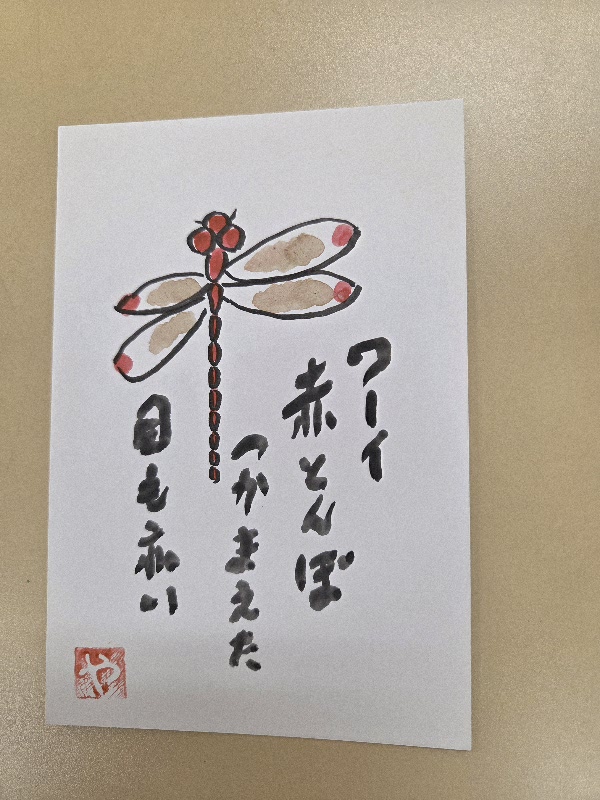 ワーイ
赤とんぼ
つかまえた
目も赤い
や